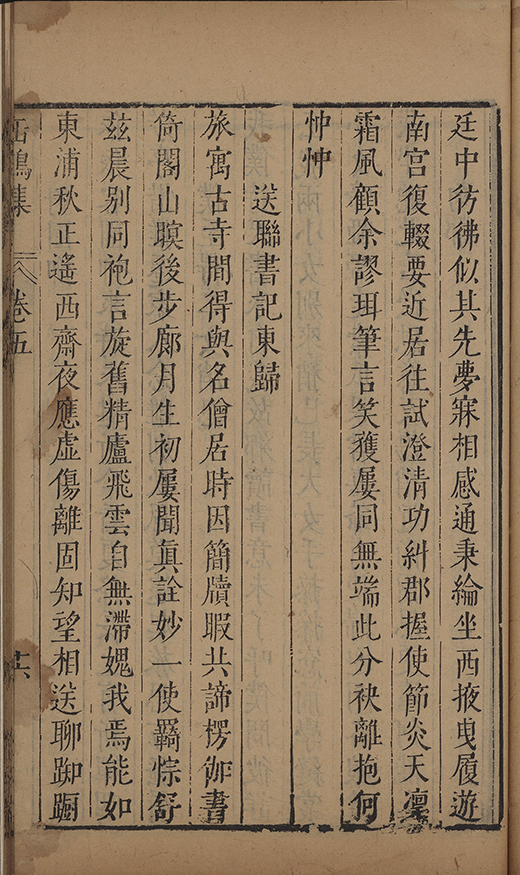 廷中彷彿似其先夢寐相感通秉綸坐西掖曳履遊
南宮復輟要近居往試澄清功糾郡握使節炎天凜
霜風顧余謬珥筆言笑獲屢同無端此分袂離抱何
忡忡
送聯書記東歸
旅寓古寺間得與名僧居時因簡牘暇共諦楞伽書
倚閣山暝後步廊月生初屢聞眞詮妙一使羈悰舒
茲晨別同袍言旋舊精廬飛雲自無滯媿我焉能如
東浦秋正遙西齋夜應虛傷離固知望相送聊踟躕
缶鳴集
卷五
十六